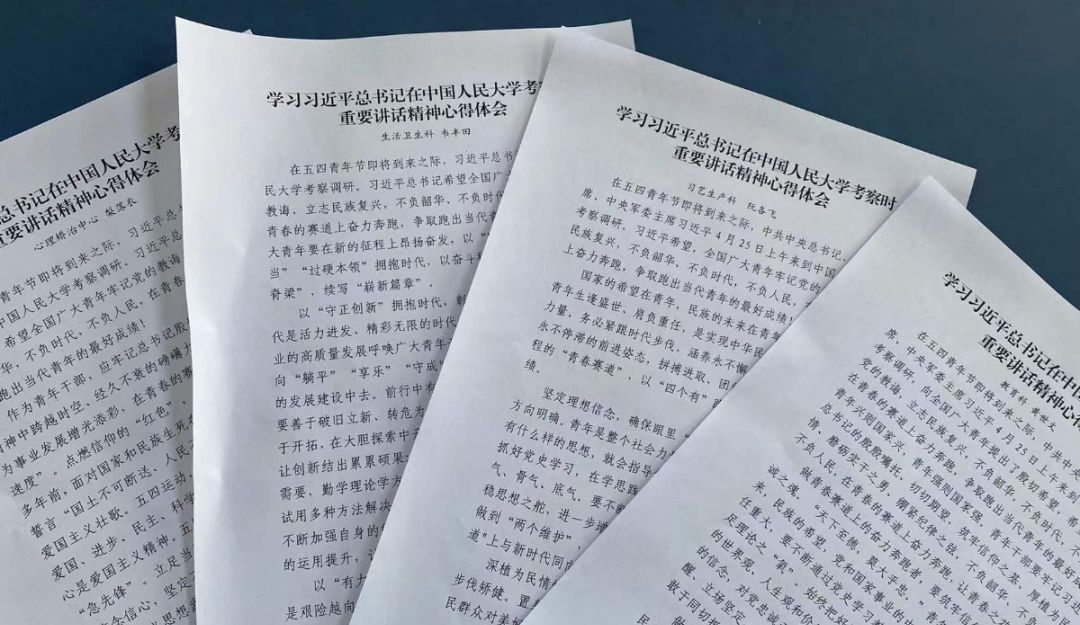 总书记在中国人民大学考察
重要讲话精神心得体会
心理矫治中心
青年节即将到来之际，习近平总
中国人民大学考察调研。习近平总
希望全国广大青年牢记党的教诲
华，不负时代，不负人民，在青春
跑出当代青年的最好成绩！
作为青年干部，应牢记总书记殷
精神中跨越时空、经久不衰的磅礴
为事业发展增光添彩，在青春的赛
速度”。点燃信仰的“红色”，
多年前，面对国家和民族生死
誓言“国土不可断送、人民
爱国主义壮歌。五四运动，
爱国、进步、民主、科学
心是爱国主义精神。五
“急先锋”。立足当
信念信心，坚定
学习习近平总书记在中国人民大学考察
重要讲话精神心得体会
生活卫生科 韦丰田
在五四青年节即将到来之际，习近平总书
民大学考察调研。习近平总书记希望全国广
教诲，立志民族复兴，不负韶华，不负时
青春的赛道上奋力奔跑，争取跑出当代青
大青年要在新的征程上昂扬奋发，以“
当”“过硬本领”拥抱时代，以奋斗
脊梁”、续写“崭新篇章”。
以“守正创新”拥抱时代，
代是活力迸发、精彩无限的时代
业的高质量发展呼唤广大青年
向“躺平”“享乐”“守成”
的发展建设中去。前行中有
要善于破旧立新、转危为
于开拓，在大胆探索中
让创新结出累累硕果
需要，勤学理论学方
试用多种方法解决
不断加强自身的
的运用提升，让
以“有大
是艰险越向
学习习近平总书记在中国人民大学考察时
重要讲话精神心得体会
习艺生产科 阮各飞
在五四青年节即将到来之际，中共中央总书记、
席、中央军委主席习近平4月25日上午来到中国
考察调研。习近平希望，全国广大青年牢记党的
民族复兴，不负韶华，不负时代，不负人民，
上奋力奔跑，争取跑出当代青年的最好成绩！
国家的希望在青年，民族的未来在青年
青年生逢盛世、肩负重任，是实现中华民
力量，务必紧跟时代步伐，涵养永不懈
永不停滞的前进姿态，拼搏进取、团
程的“青春赛道”，以“四个有”
绩。
坚定理想信念，确保眼里“
方向明确。青年是整个社会力
有什么样的思想，就会指导
抓好党史学习，在学思践
气、骨气、底气。要不断
稳思想之舵，进一步增
做到“两个维护”，
道”上与新时代同向
深植为民情
步伐矫健。置
民群众对美好
学习习近平总书记在中国
重要讲话精神心
教育科 黄世文
在五四青年节即将到来之际，中共中央
席、中央军委主席习近平4月25日上午来到
考察调研，向全国广大青年提出了殷切希望，希
党的教诲，立志民族复兴，不负韶华，不负时代，不
在青春的赛道上奋力奔跑，争取跑出当代青年的最好
青年兴则国家兴，青年强则国家强。青年干部要牢记习近
总书记的殷殷嘱托，切切期望，筑牢信仰之基、厚植为
情、磨砺实干之勇、绷紧纪律之弦，不负韶华、不负时
不负人民，在青春的赛道上奋力奔跑，让青春之
做青春赛道上的奋力奔跑者。
诚之魂。“天下至德，莫大乎忠。”青
来，民族的希望，党和国家事业的
任重大，要不断通过党史学习教
足理论之“氧”，始终把好
的世界观、人生观和价
的信念，对党忠诚
醒、立场坚定
敢于同切